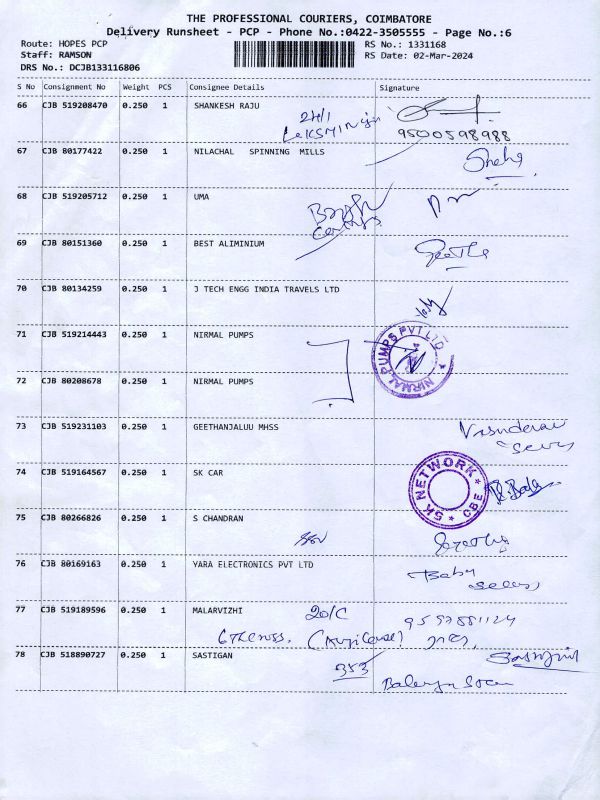 THE PROFESSIONAL COURIERS, COIMBATORE
Delivery Runsheet - PCP - Phone No.:0422-3505555 - Page No.:6
Route: HOPES PCP RS No.: 1331168
Staff: RAMSON RS Date: 02-Mar-2024
DRS No.: DCJB133116806
S No Consignment No Weight PCS Consignee Details Signature
66 CJB 519208470 0.250 1 SHANKESH RAJU
9500598988
67 CJB 80177422 0.250 1 NILACHAL SPINNING MILLS
68 CJB 519205712 0.250 1 UMA
69 CJB 80151360 0.250 1 BEST ALIMINIUM
Geetha
70 CJB 80134259 0.250 1 J TECH ENGG INDIA TRAVELS LTD
71 CJB 519214443 0.250 1 NIRMAL PUMPS
NIRMAL PUMPS PVT LTD
72 CJB 80208678 0.250 1 NIRMAL PUMPS
73 CJB 519231103 0.250 1 GEETHANJALUU MHSS
74 CJB 519164567 0.250 1 SK CAR
SK NETWORK * CBE *
75 CJB 80266826 0.250 1 S CHANDRAN
76 CJB 80169163 0.250 1 YARA ELECTRONICS PVT LTD
Baby
77 CJB 519189596 0.250 1 MALARVIZHI
20/C
78 CJB 518890727 0.250 1 SASTIGAN
353